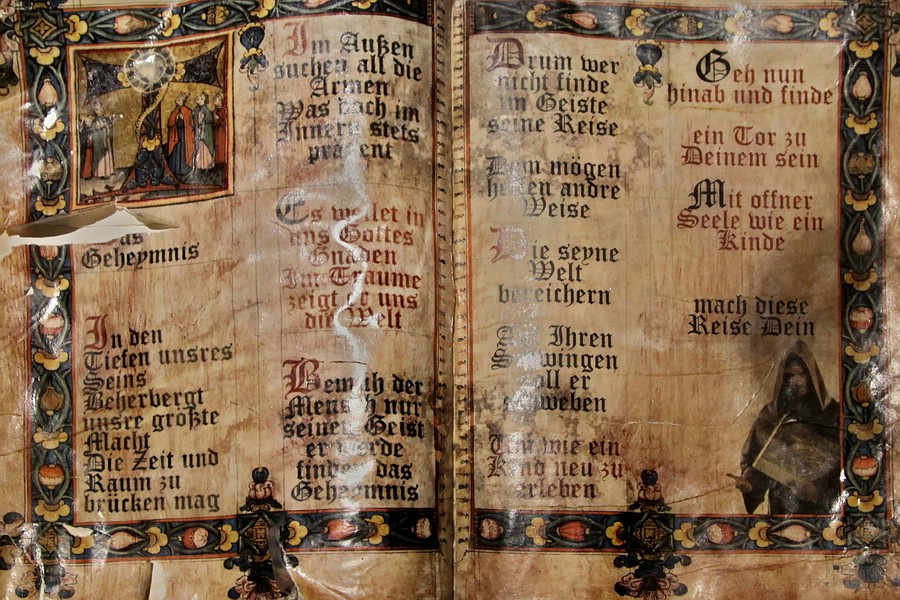 Das
Geheymnis
In den
Tiefen unsres
Seins
Beherbergt
unsre größte
Macht
Die Zeit und
Raum zu
brücken mag
Im Außen
suchen all die
Armen
Was doch im
Innern stets
präsent
Es waltet in
uns Gottes
Gnaden
Im Traume
zeigt er uns
die Welt
Bemüh der
Mensch nur
seinen Geist
er werde
finden das
Geheymnis
Drum wer
nicht finde
im Geiste
seine Reise
Dem mögen
helfen andre
Weise
Die seyne
Welt
bereichern
Auf Ihren
Schwingen
soll er
schweben
Um wie ein
Kind neu zu
erleben
Geh nun
hinab und finde
ein Tor zu
Deinem sein
Mit offner
Seele wie ein
Kinde
mach diese
Reise Dein